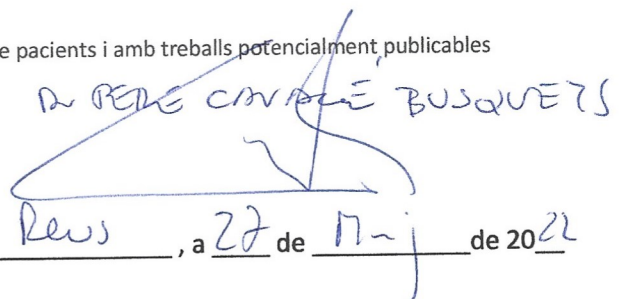 e pacients i amb treballs potencialment publicables
Dr PERE CAVALLÉ BUSQUETS
Reus, a 27 de Maj de 2022